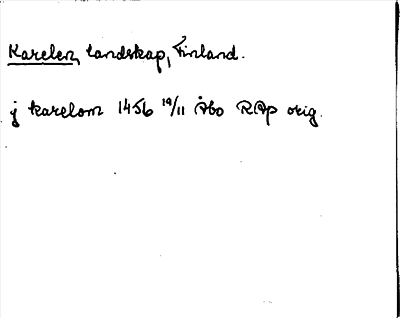 Karelen, landskap, Finland.
j karelom 1456 19/11 Åbo RAp orig.